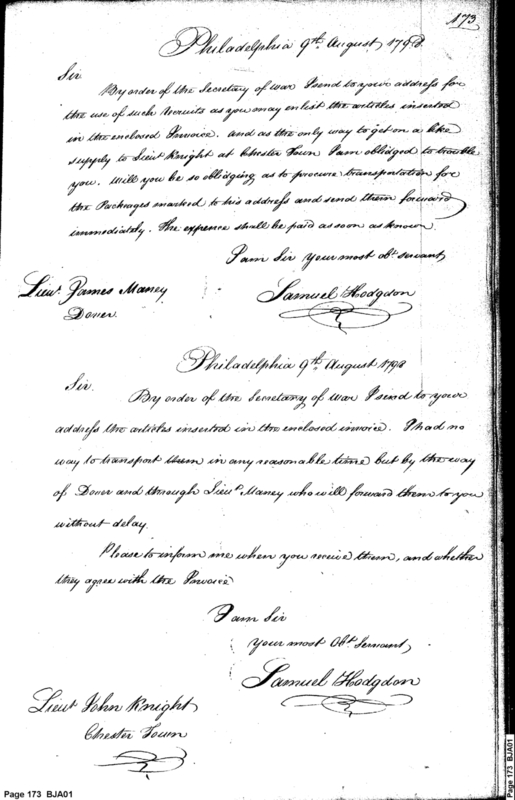 173
Philadelphia 9th August 1798.
Sir
By order of the Secretary of War I send to your address for
the use of such recruits as you may enlist the articles inserted
in the enclosed Invoice. and as the only way to get on a like
supply to Lieut Knight at Chester Town I am obliged to trouble
you. Will you be so obliging as to procure transportation for
the Packages marked to his address and send them forward
immediately. The expence shall be paid as soon as known.
I am Sir your most obt servant,
Lieut. James Maney
Samuel Hodgdon
Dover.
Philadelphia 9th August 1798
Sir.
By order of the Secretary of War I send to your
address the articles inserted in the enclosed invoice. I had no
way to transport them in any reasonable time but by the way
of Dover and through Lieut. Maney who will forward them to you
without delay.
Please to inform me when you receive them, and whether
they agree with the Invoice
I am Sir
your most Obt. Servant,
Samuel Hodgdon
Lieut John Knight
Chester Town
Page 173 BJA01
Page 173 BJA01